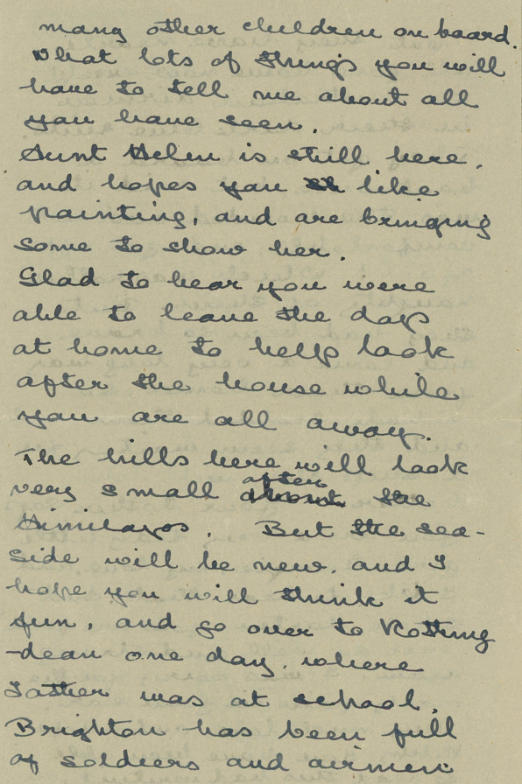 many other children on board.
What lots of things you will
have to tell me about all
you have seen.
Aunt Helen is still here,
and hopes you like
painting, and are bringing
some to show her.
Glad to hear you were
able to leave the dogs
at home to help look
after the house while
you are all away.
The hills here will look
very small after the
Himilayos. But the sea-
side will be new, and I
hope you will think it
fun, and go over to Rotting
-dean one day, where
Father was at school.
Brighton has been full
of soldiers and airmen